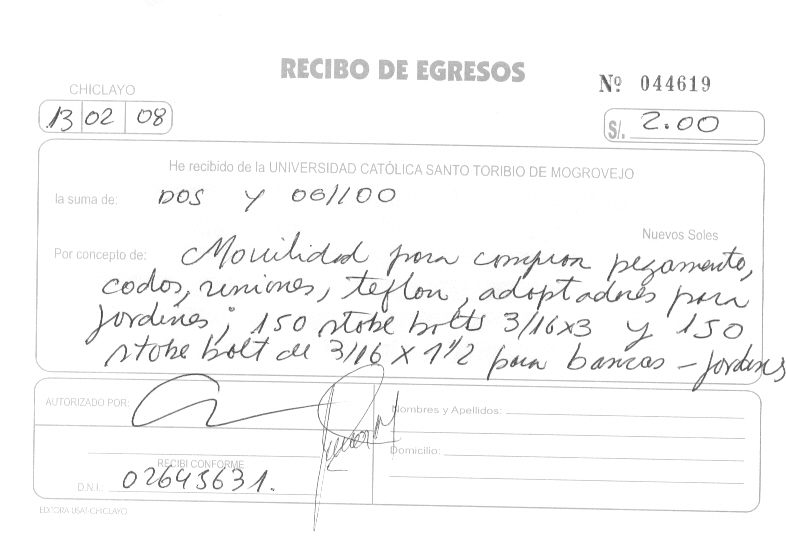 RECIBO DE EGRESOS
Nº 044619
CHICLAYO
13 02 08
S/. 2.00
He recibido de la UNIVERSIDAD CATÓLICA SANTO TORIBIO DE MOGROVEJO
la suma de: DOS Y 00/100
Nuevos Soles
Por concepto de: Movilidad para comprar pegamento,
codos, uniones, teflon, adaptadores para
jardines; 150 stobe bolts 3/16x3 y 150
stobe bolt de 3/16 x 1 1/2 para bancas - jardines
AUTORIZADO POR:
Nombres y Apellidos:
Domicilio:
RECIBI CONFORME
D.N.I. 02645631.
EDITORA USAT-CHICLAYO